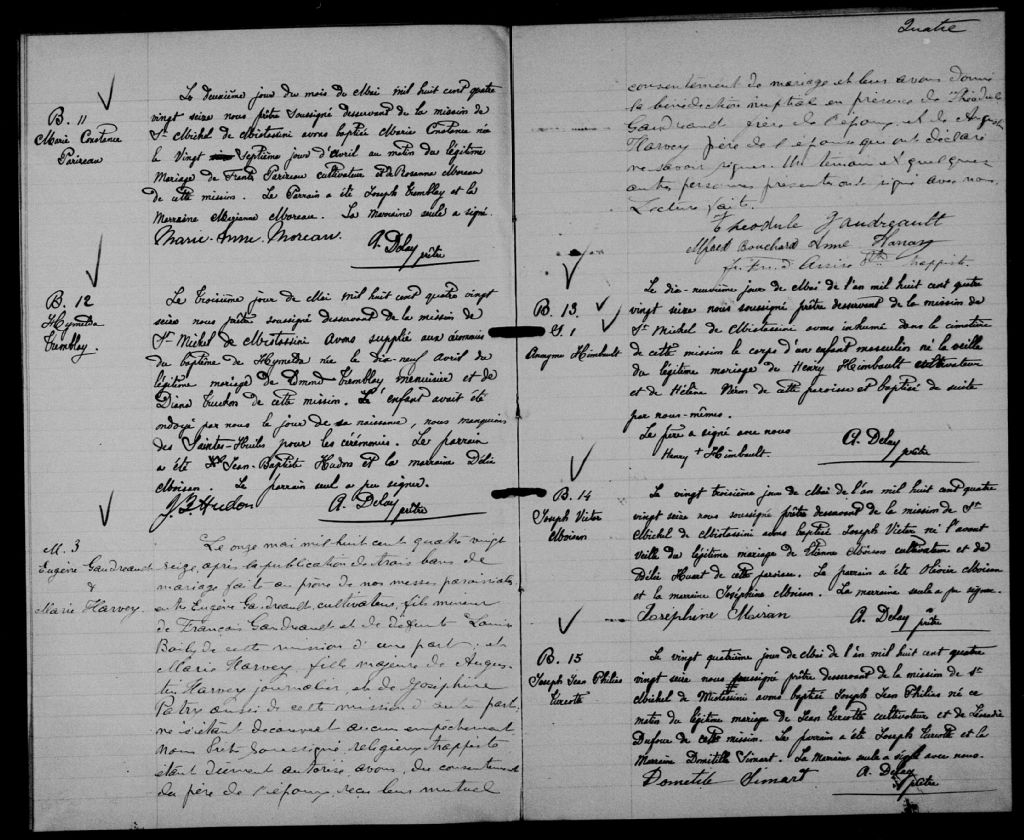 B. 11
Marie Constance
Parizeau
Le deuxième jour du mois de Mai mil huit cent quatre
vingt seize nous prêtre soussigné desservant de la mission de
St. Michel de Mistassini avons baptisé Marie Constance née
le Vingt Septième jour d'avril au matin du légitime
Mariage de Frenk Parizeau cultivateur et de Rosanna Moreau
de cette mission. Le Parrain a été Joseph Tremblay et la
Marraine Marianne Moreau. La marraine seule a signé.
Marie-Anne-Moreau.
A. Delay
prêtre
B. 12
Hymelda
Tremblay.
Le Troisième jour de Mai mil huit cent quatre vingt
seize nous prêtre soussigné desservant de la mission de
St Michel de Mistassini avons supplié aux cérémonies
du baptême de Hymelda née le dix-neuf avril du
légitime mariage de Edmond Tremblay, menuisier et de
Diana Truchon de cette mission. L'enfant avait été
ondoyé par nous le jour de sa naissance, nous manquions
des Saintes-Huiles pour les cérémonies. Le parrain
a été Jean-Baptiste Hudon et la marraine Délia
Moisan. Le parrain seul a pu signer.
J. B Hudon
A. Delay
prêtre
M. 3
Eugène Gaudreault
&
Marie Harvey.
Le onze mai mil-huit cent quatre vingt
seize, après la publication de trois bans de
mariage fait au prône de nos messes paroissiales
entre Eugène Gaudreault, cultivateur, fils mineur
de François Gaudreault et de défunte Louise
Boily de cette mission d'une part; et
Marie Harvey, fille majeure de Augus-
tin Harvey journalier, et de Joséphine
Patry aussi de cette mission d'autre part;
ne s'étant découvert aucun empêchement,
Nous Prêtre Soussigné religieux trappiste
étant dûment autorisé avons, du consentement
du père de l'époux, reçu leur mutuel
Quatre
consentement de mariage et leur avons donné
la bénédiction nuptial en présence de Théodule
Gaudreault frère de l'époux et de Augustin
Harvey père de l'épouse qui ont déclaré
ne savoir signer. Un témoin et quelques
autres personnes présentes ont signé avec nous.
Lecture faite.
Theodule Gaudreault
Alfred Bouchard
B. 13.
S. 1
Anonyme Himbault
Le dix-neuvième jour de Mai de l'an mil huit cent quatre
vingt seize nous soussigné prêtre desservant de la mission de
St Michel de Mistassini avons inhumé dans le cimetière
de cette mission le corps d'un enfant masculin né la veille
du légitime mariage de Henry Himbault cultivateur
et de Hélène Néron de cette paroisse et baptisé de suite
par nous-mêmes.
Le père a signé avec nous
Henry + Himbault.
A. Delay
prêtre
B. 14
Joseph Victor
Moison
Le vingt troisième jour de Mai de l'an mil huit cent quatre
vingt seize nous soussigné prêtre desservant de la mission de St
Michel de Mistassini avons baptisé Joseph Victor né l'avant
veille du légitime mariage de Etienne Moison cultivateur et de
Délia Huart de cette paroisse. Le parrain a été Olivier Moison
et la marraine Joséphine Moison. La marraine seule a pu signer.
Joséphine Moiran
A. Delay
ptre
B. 15
Joseph Jean Philias
Turcotte
Le vingt quatrième jour de Mai de l'an mil huit cent quatre
vingt seize nous soussigné prêtre desservant de la mission de St
Michel de Mistassini avons baptisé Joseph Jean Philias né ce
matin du légitime mariage de Jean Turcotte cultivateur et de Léocadie
Dufour de cette mission. Le parrain a été Joseph Turcotte et la
Marraine Domitille Simart. La Marraine seule a signé avec nous.
Dometile Simart
A. Delay
ptre